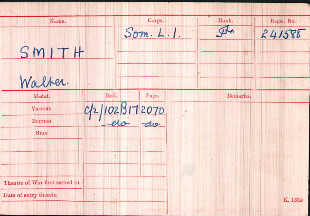 Name. Corps. Rank. Regtl. No.
SMITH Som. L.I. Pte 241585
Walter.
Medal. Roll. Page. Remarks.
Victory C/2/102B17 2070
British -do- -do-
Star
Theatre of War first served in
Date of entry therein
K. 1380